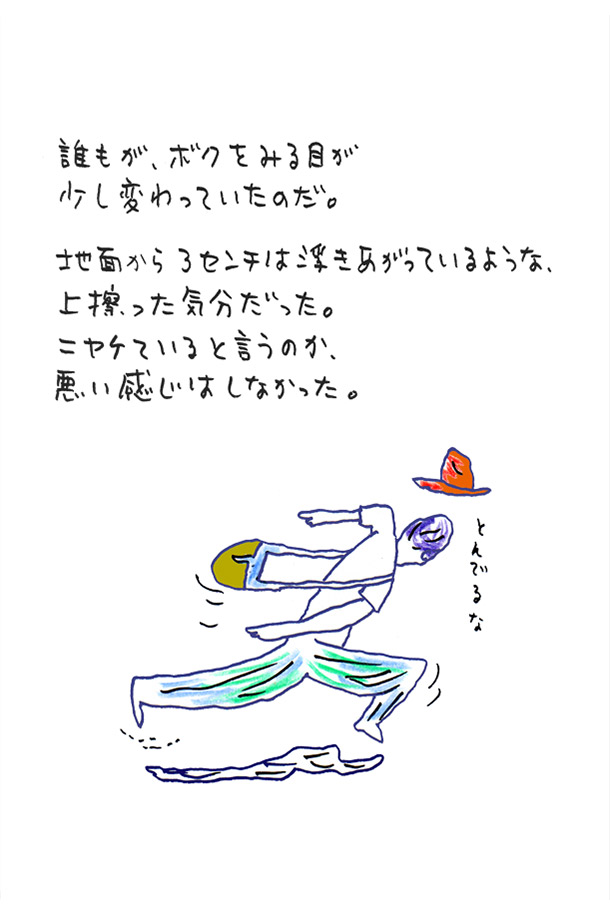 誰もが、ボクをみる目が
少し変わっていたのだ。
地面から3センチは浮きあがっているような、
上擦った気分だった。
ニヤケていると言うのか、
悪い感じはしなかった。
とんでるな